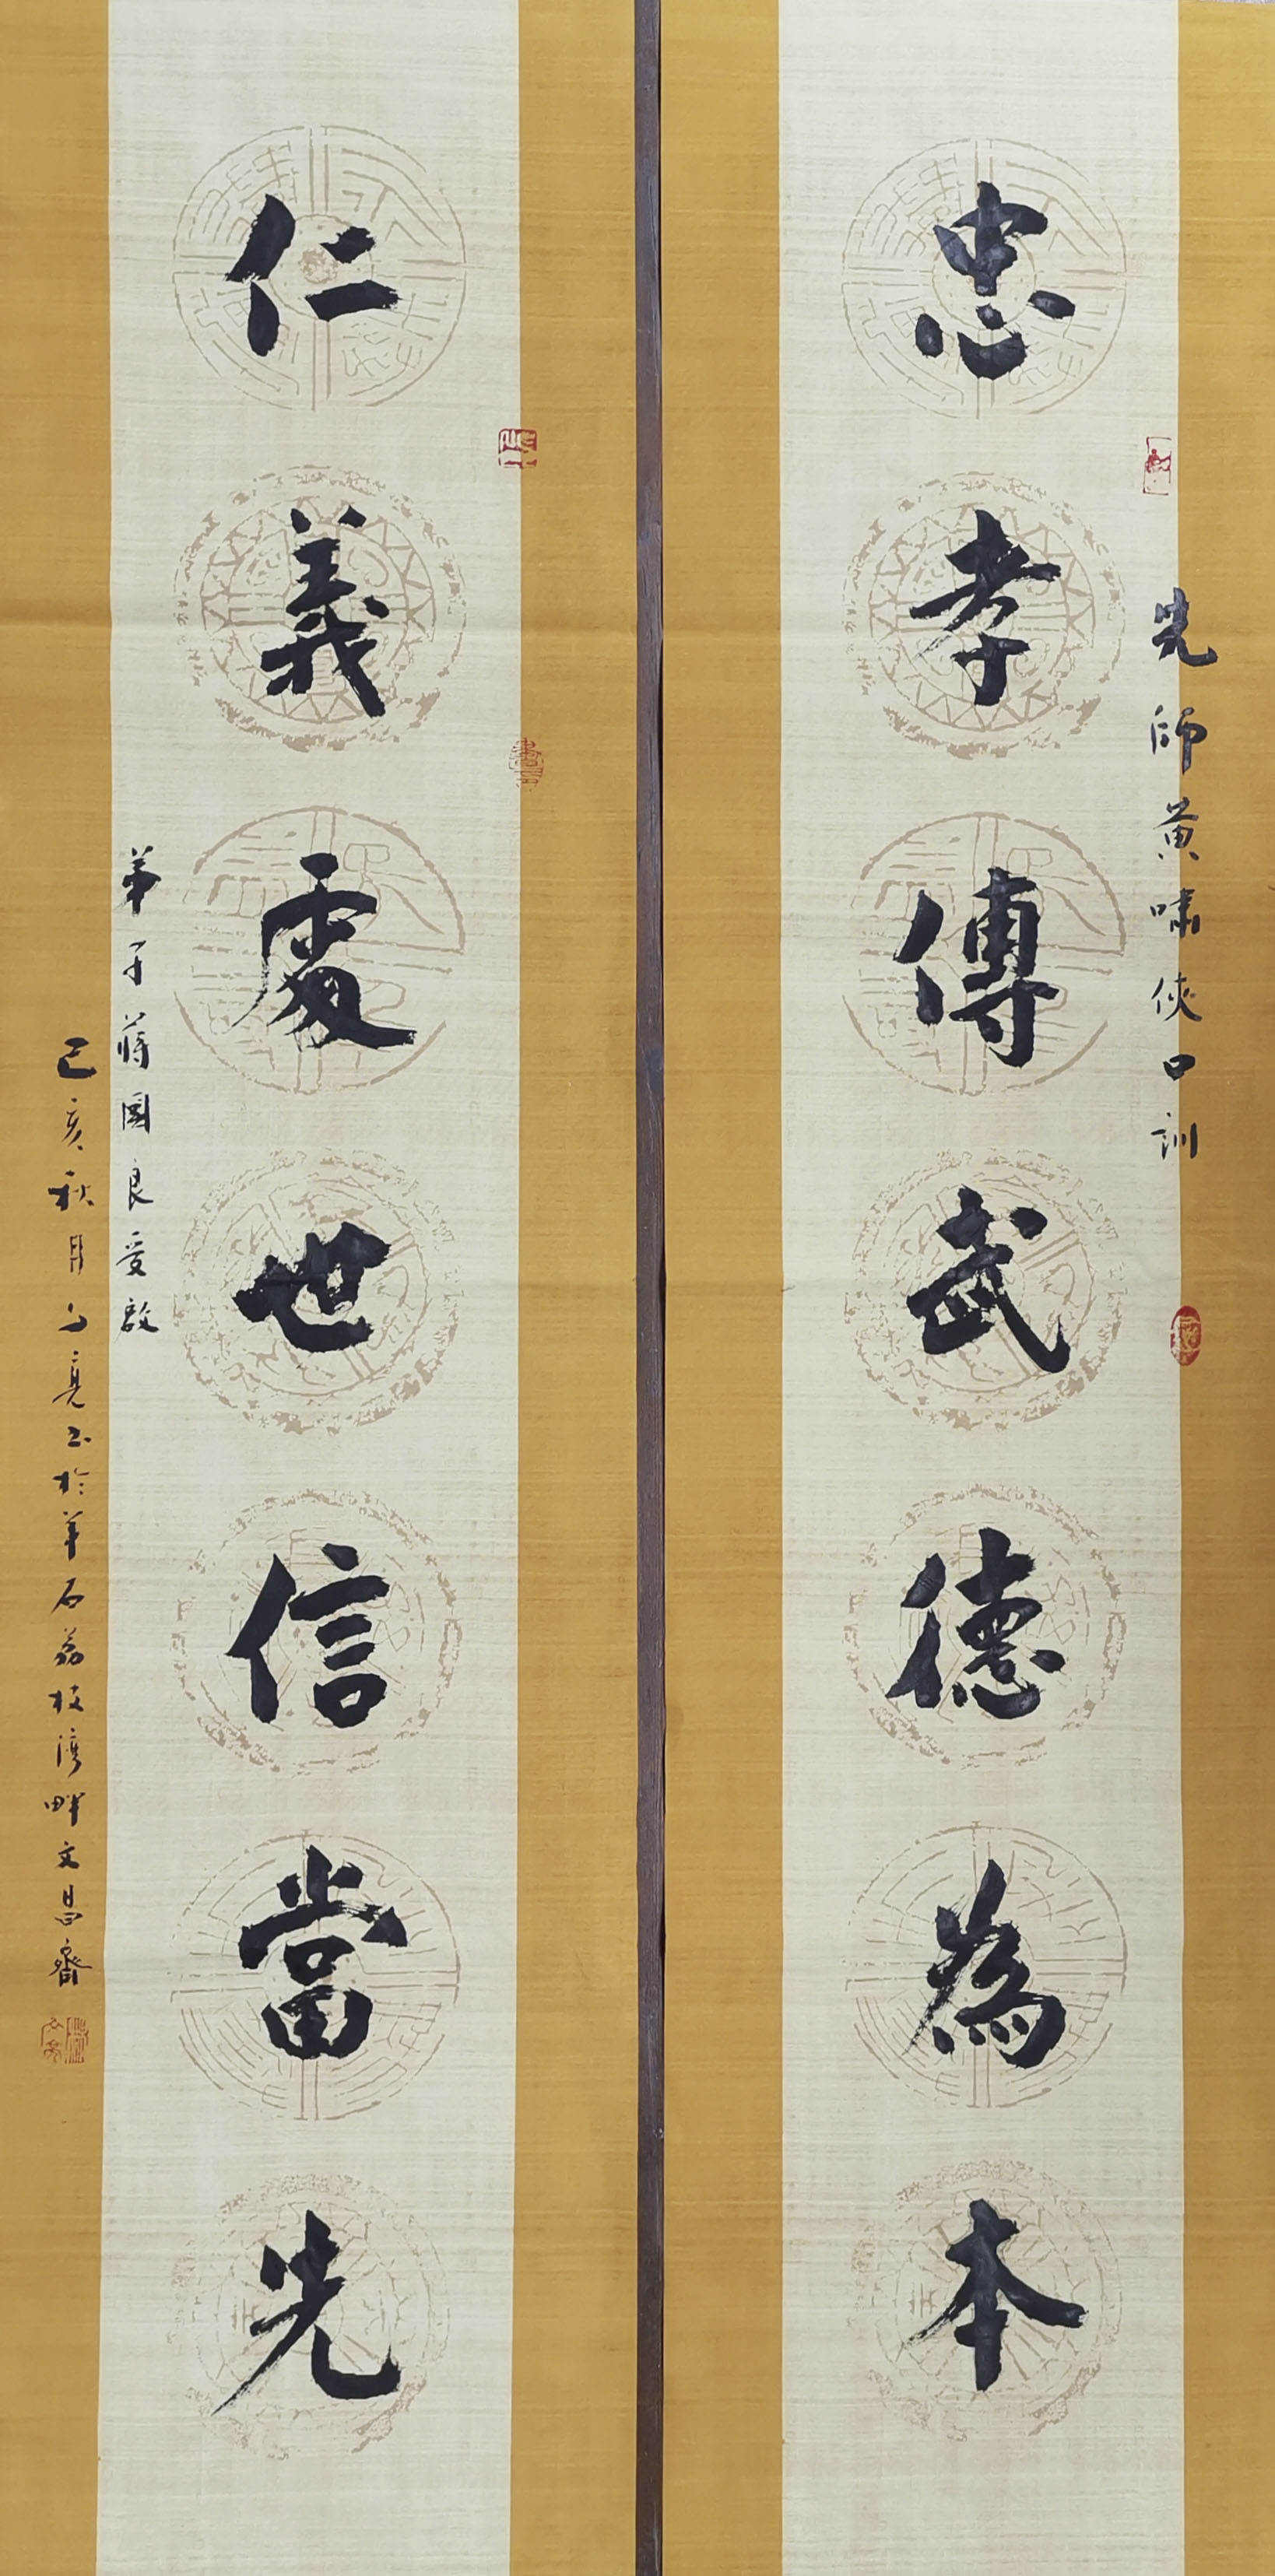 先師黃嘯俠口訓
忠孝傳武德為本
仁義處世信當先
弟子蔣國良受教
己亥秋月 亮書於羊石荔枝灣畔文昌齋